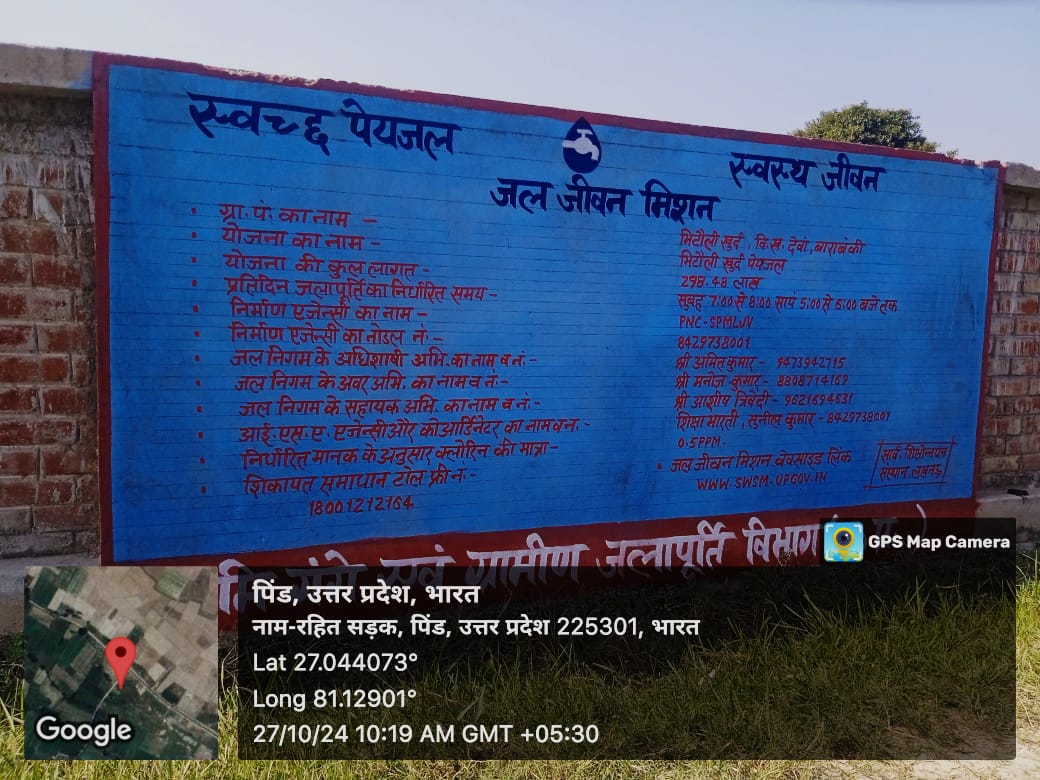 स्वच्छ पेयजल
स्वस्थ जीवन
जल जीवन मिशन
• ग्रा.पं. का नाम –
• योजना का नाम –
• योजना की कुल लागत –
• प्रतिदिन जलापूर्ति का निर्धारित समय –
• निर्माण एजेन्सी का नाम –
• निर्माण एजेन्सी का नोडल नं:-
• जल निगम के अधिशाषी अभि. का नाम व नं:-
• जल निगम के अवर अभि. का नाम व नं:-
• जल निगम के सहायक अभि. का नाम व नं:-
• आई.एस.ए. एजेन्सी और कोआर्डिनेटर का नाम व न.-
• निर्धारित मानक के अनुसार क्लोरिन की मात्रा –
• शिकायत समाधान टोल फ्री नं:-
18001212164
भिटौली खुर्द, वि.ख. देवां, बाराबंकी
भिटौली खुर्द पेयजल
298.48 लाख
सुबह 7:00 से 8:00 सायं 5:00 से 6:00 बजे तक
PNC-SPMLJV
8429738001
श्री अमित कुमार – 9473942715
श्री मनोज कुमार – 8808714169
श्री आशीष त्रिवेदी – 9621694631
शिक्षा भारती, सुनील कुमार – 8429738001
0.5PPM.
• जल जीवन मिशन वेवसाइड लिंक
WWW.SWSM.UPGOV.IN
संस्थान लखनऊ
एवं ग्रामीण जलापूर्ति विभाग
GPS Map Camera
पिंड, उत्तर प्रदेश, भारत
नाम-रहित सड़क, पिंड, उत्तर प्रदेश 225301, भारत
Lat 27.044073°
Long 81.12901°
27/10/24 10:19 AM GMT +05:30
Google